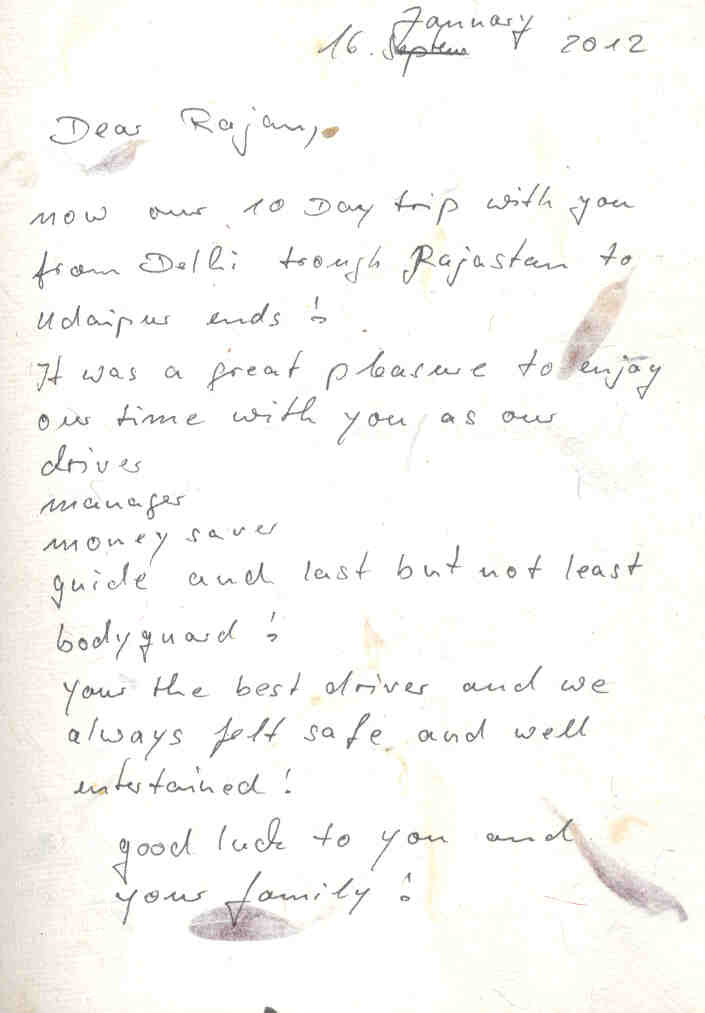 16. January 2012
Dear Rajan,
now our 10 Day trip with you
from Delhi trough Rajastan to
Udaipur ends !
It was a great pleasure to enjoy
our time with you as our
driver
manager
money saver
guide and last but not least
bodyguard !
your the best driver and we
always felt safe and well
entertained !
good luck to you and
your family !